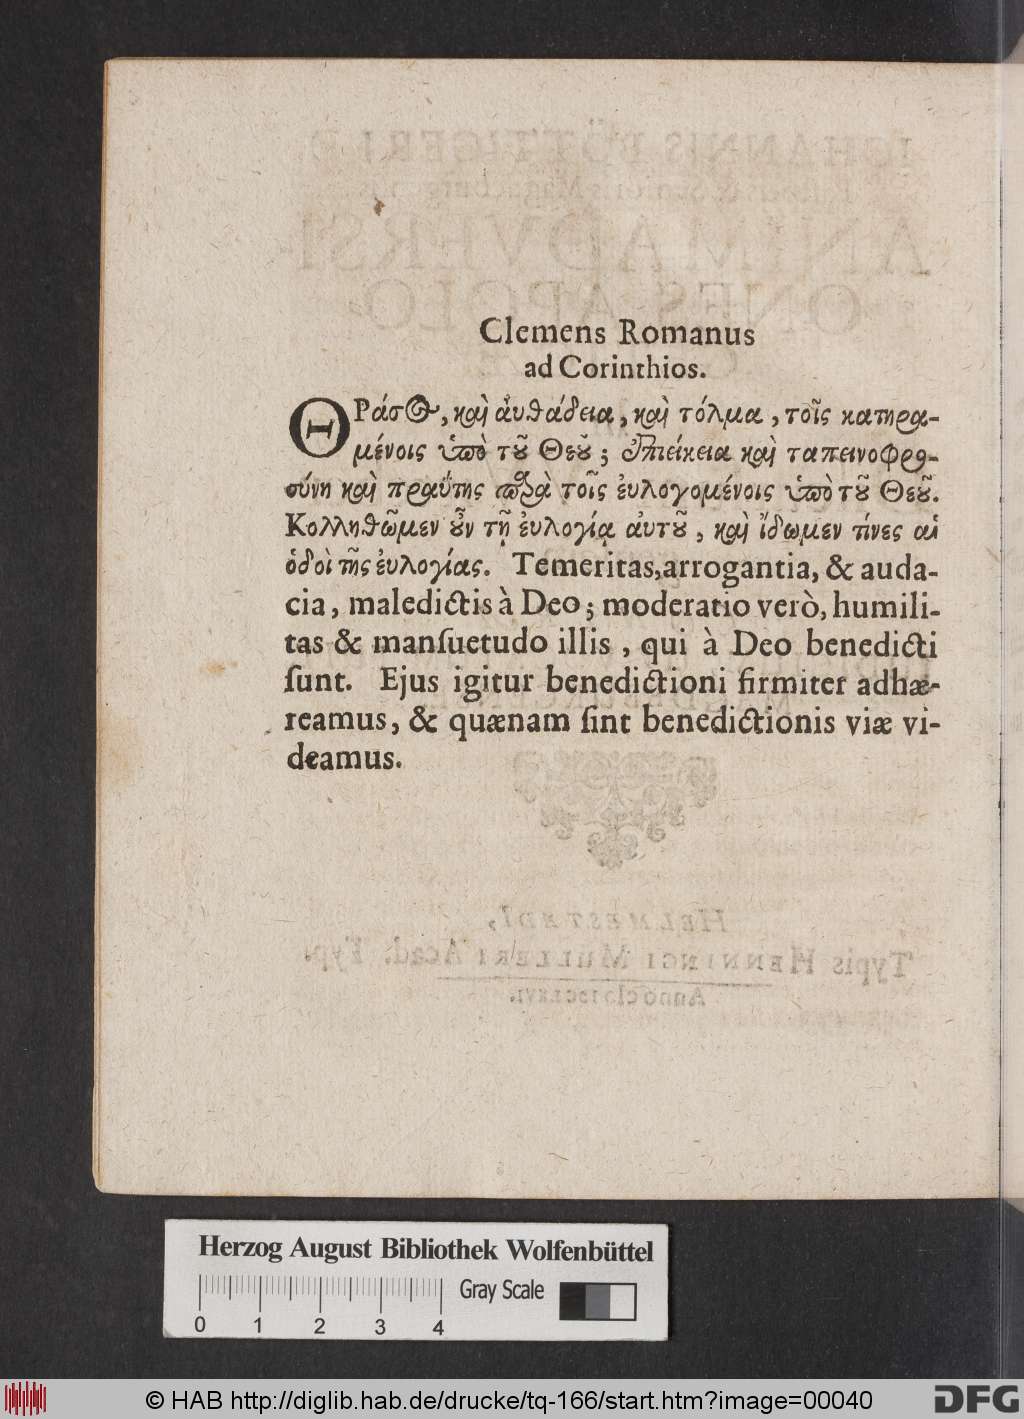 Clemens Romanus
ad Corinthios.
ΘΡάσος, καὶ ἀυθάδεια, καὶ τόλμα, τοῖς κατηρα-
μένοις ὑπὸ τοῦ Θεοῦ; ἐπιείκεια καὶ ταπεινοφρο-
σύνη καὶ πραΰτης παρὰ τοῖς ἐυλογομένοις ὑπὸ τοῦ Θεοῦ.
Κολληθῶμεν οὖν τῇ ἐυλογίᾳ ἀυτοῦ, καὶ ἴδωμεν τίνες αἱ
ὁδοὶ τῆς ἐυλογίας. Temeritas, arrogantia, & auda-
cia, maledictis à Deo; moderatio verò, humili-
tas & manſuetudo illis, qui à Deo benedicti
ſunt. Ejus igitur benedictioni firmiter adhæ-
reamus, & quænam ſint benedictionis viæ vi-
deamus.
Herzog August Bibliothek Wolfenbüttel
Gray Scale
0 1 2 3 4
© HAB http://diglib.hab.de/drucke/tq-166/start.htm?image=00040
DFG